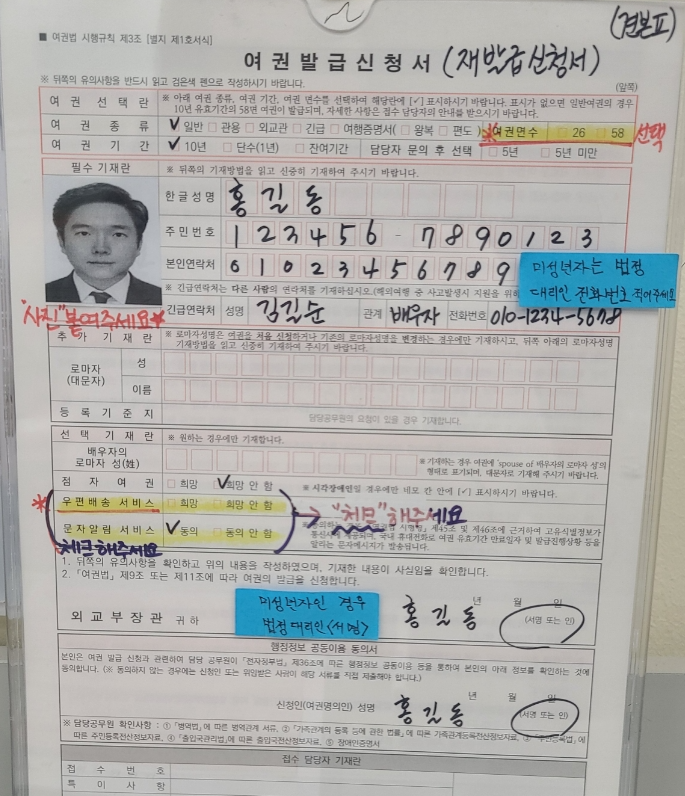 (견본표)
■ 여권법 시행규칙 제3조 [별지 제1호서식]
여권발급신청서 (재발급신청서)
※ 뒤쪽의 유의사항을 반드시 읽고 검은색 펜으로 작성하시기 바랍니다. (앞쪽)
여권 선택란 ※ 아래 여권 종류, 여권 기간, 여권 면수를 선택하여 해당란에 [✓] 표시하시기 바랍니다. 표시가 없으면 일반여권의 경우
10년 유효기간의 58면 여권이 발급되며, 자세한 사항은 접수 담당자의 안내를 받으시기 바랍니다.
여권 종류 ✓ 일반 □ 관용 □ 외교관 □ 긴급 □ 여행증명서(□ 왕복 □ 편도) ※여권면수 □ 26 □ 58 선택
여권 기간 ✓ 10년 □ 단수(1년) □ 잔여기간 담당자 문의 후 선택 □ 5년 □ 5년 미만
필수 기재란 ※ 뒤쪽의 기재방법을 읽고 신중히 기재하여 주시기 바랍니다.
한글성명 홍길동
주민번호 123456 - 7890123
본인연락처 01023456789
미성년자는 법정
대리인 전화번호 적어주세요
※ 긴급연락처는 다른 사람의 연락처를 기재하십시오.(해외여행 중 사고발생시 지원을 위하
긴급연락처 성명 김길순 관계 배우자 전화번호 010-1234-5678
"사진"붙여주세요★
추가 기재란 ※ 로마자성명은 여권을 처음 신청하거나 기존의 로마자성명을 변경하는 경우에만 기재하시고, 뒤쪽 아래의 로마자성명
기재방법을 읽고 신중히 기재하여 주시기 바랍니다.
로마자
(대문자)
성
이름
등록기준지 담당공무원의 요청이 있을 경우 기재합니다.
선택 기재란 ※ 원하는 경우에만 기재합니다.
배우자의
로마자 성(姓)
※ 기재하는 경우 여권에 'spouse of 배우자의 로마자 성'의
형태로 표기되며, 대문자로 기재해 주시기 바랍니다.
점자여권 □ 희망 ✓ 희망 안 함 ※ 시각장애인일 경우에만 네모 칸 안에 [✓] 표시하시기 바랍니다.
※ 우편배송 서비스 □ 희망 □ 희망 안 함
→ "체크"해주세요
문자알림 서비스 ✓ 동의 □ 동의 안 함
제45조 및 제46조에 근거하여 고유식별정보가
통신사에 제공되며, 국내 휴대전화로 여권 유효기간 만료일자 및 발급진행상황 등을
알리는 문자메시지가 발송됩니다.
체크해주세요
1. 뒤쪽의 유의사항을 확인하고 위의 내용을 작성하였으며, 기재한 내용이 사실임을 확인합니다.
2. 「여권법」 제9조 또는 제11조에 따라 여권의 발급을 신청합니다.
년 월 일
미성년자인 경우
법정대리인<서명>
외교부장관 귀하
홍길동 (서명 또는 인)
행정정보 공동이용 동의서
본인은 여권 발급 신청과 관련하여 담당 공무원이 「전자정부법」 제36조에 따른 행정정보 공동이용 등을 통하여 본인의 아래 정보를 확인하는 것에
동의합니다. (※ 동의하지 않는 경우에는 신청인 또는 위임받은 사람이 해당 서류를 직접 제출해야 합니다.)
년 월 일
신청인(여권명의인) 성명 홍길동 (서명 또는 인)
※ 담당공무원 확인사항 : ① 「병역법」에 따른 병역관계 서류, ② 「가족관계의 등록 등에 관한 법률」에 따른 가족관계등록전산정보자료, ③ 「주민등록법」에
따른 주민등록전산정보자료, ④ 「출입국관리법」에 따른 출입국전산정보자료, ⑤ 장애인증명서
접수 담당자 기재란
접수번호
특이사항